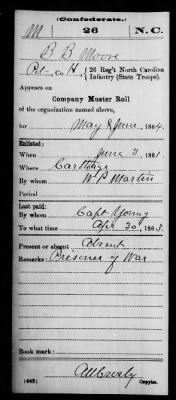 (Confederate.)
M 26 N.C.
B B Moore
Pvt., Co. H, 26 Reg't North Carolina
Infantry (State Troops).
Appears on
Company Muster Roll
of the organization named above,
for May & June, 1864.
Enlisted:
When June 3, 1861.
Where Carthage
By whom W P Martin
Period
Last paid:
By whom Capt Young
To what time Apr 30, 1863.
Present or absent Absent
Remarks: Prisoner of War
Book mark:
(642) Copyist.